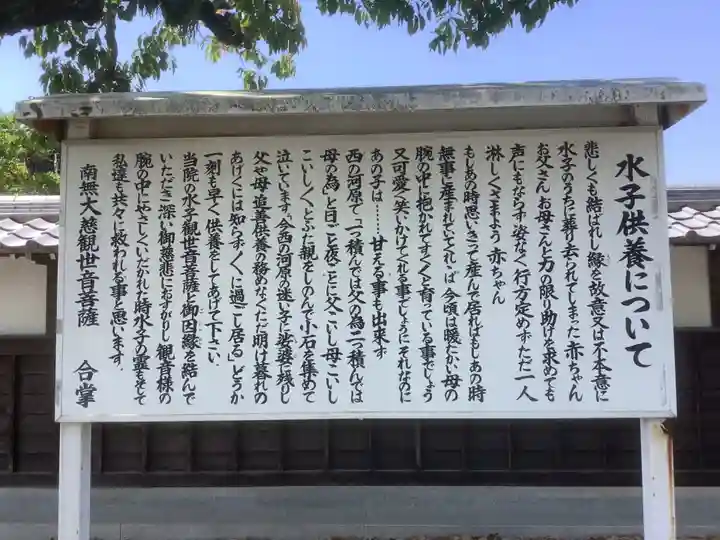 水子供養について
悲しくも結ばれし縁を故意又は不本意に
水子のうちに葬り去られてしまった赤ちゃん
お父さんお母さんと力の限り助けを求めても
声にもならず姿なく行方定めずただ一人
淋しくさまよう赤ちゃん
もしあの時思いきって産んで居ればもしあの時
無事に産まれていてくれゝば今頃は暖たかい母の
腕の中に抱かれてすくすくと育っている事でしょう
又可愛く笑いかけてくれる事でしょうにそれなのに
あの子は……甘える事も出来ず
西の河原で一つ積んでは父の為二つ積んでは
母の為と日ごと夜ごとに父こいし母こいし
こいしくとふた親をしのんで小石を集めて
泣いています。今西の河原の迷い子に娑婆に残りし
父や母追善供養の務めなくただ明け暮れの
あけくには知らずくに過ごし居るどうか
一刻も早く供養をしてあげて下さい。
当院の水子観世音菩薩と御因縁を結んで
いただき深い御慈悲におすがりし観音様の
腕の中にやさしくいだかれた時水子の霊もそして
私達も共々に救われる事と思います。
南無大慈観世音菩薩 合掌